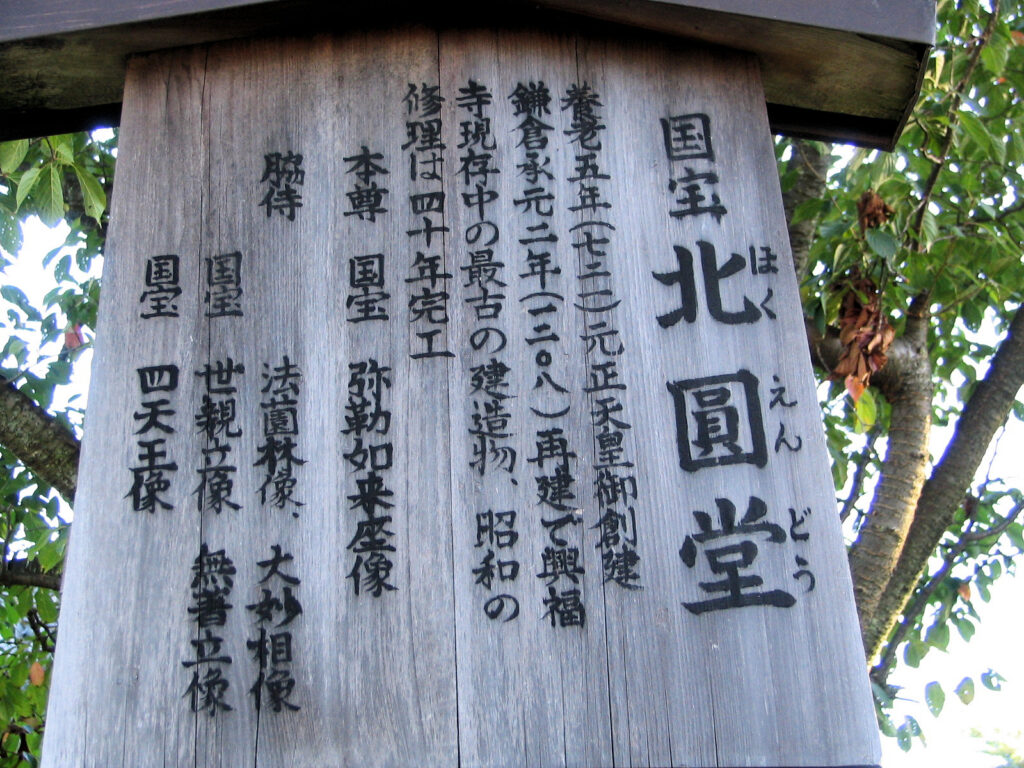 国宝 北圓堂
ほくえんどう
養老五年(七二一)元正天皇御創建
鎌倉承元二年(一二〇八)再建で興福
寺現存中の最古の建造物、昭和の
修理は四十年完工
本尊 国宝 弥勒如来座像
脇侍 法薗林像、大妙相像
国宝 世親立像 無著立像
国宝 四天王像